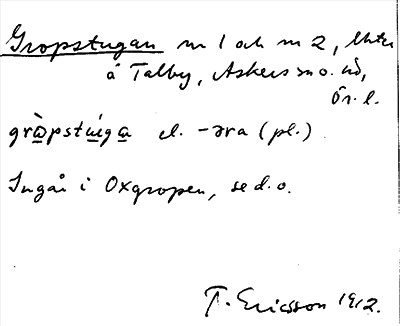 Gropstugan n 1 och n 2, lhtr
å Talby, Askers sn o. hd,
Ör. l.
grὼpstúga el. -əra (pl.)
Ingår i Oxgropen, se d. o.
T. Ericsson 1912.